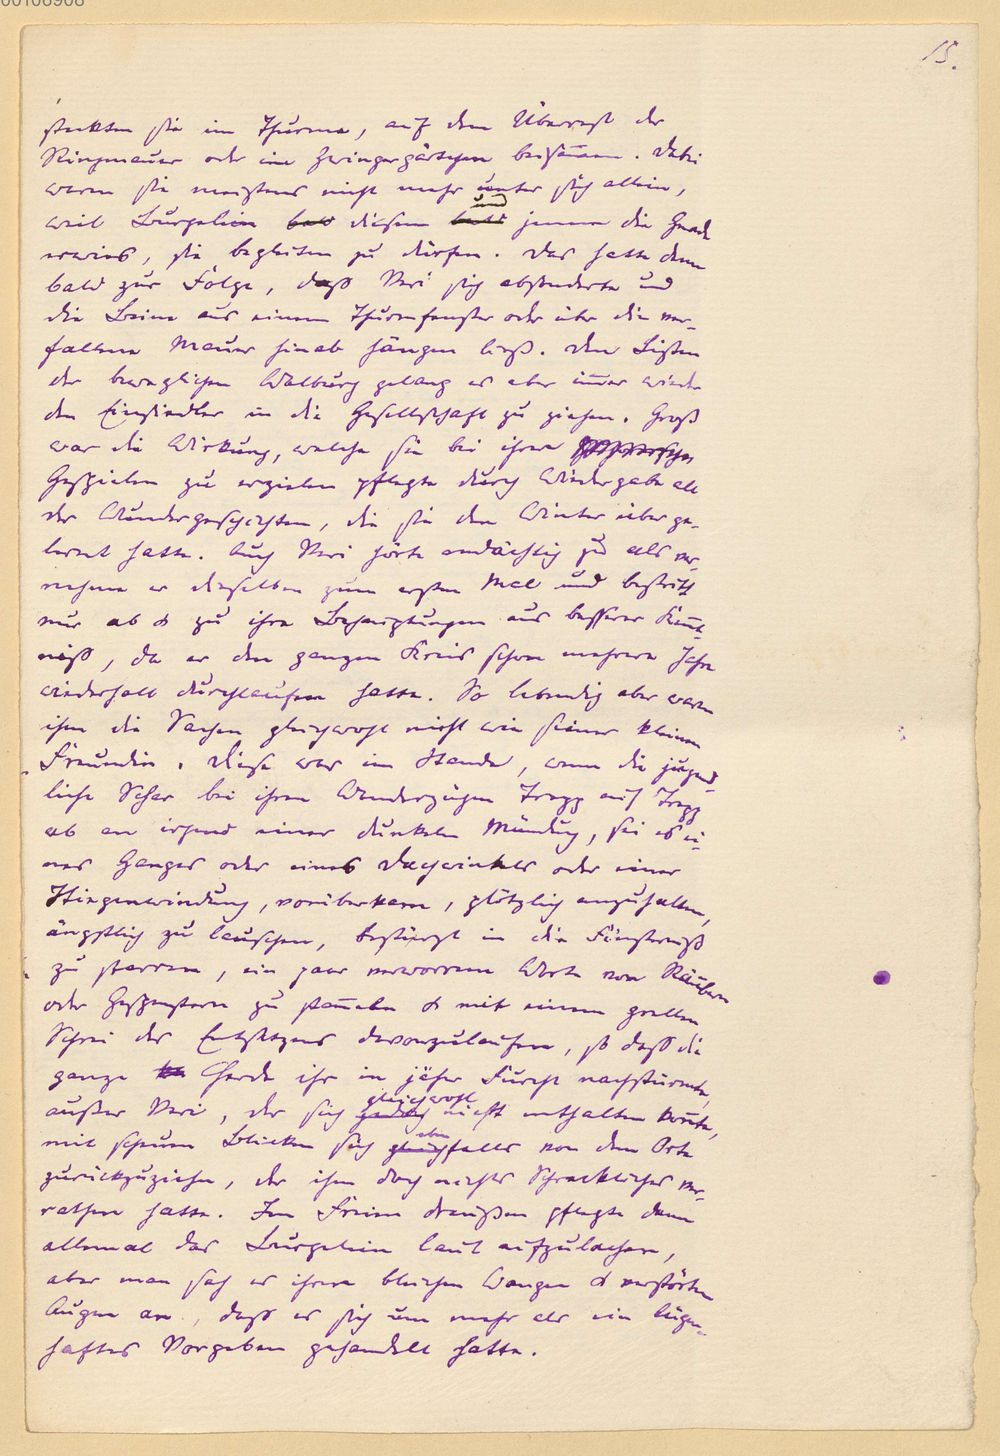 00106908
15.
steckten sie im Thurme, auf dem Überrest der
Ringmauer oder im Zwingergärtchen beisam̄en. Dabei
waren sie meistens nicht mehr unter sich allein,
weil Burgelein bald diesem bald und jenem die Gnade
erwies, sie begleiten zu dürfen. Das hatte denn
bald zur Folge, daß Veri sich absonderte und
die Beine aus einem Thurmfenster oder über die ver-
fallene Mauer hinab hängen ließ. Den Listen
der beweglichen Walburg gelang es aber im̄er wieder
den Einsiedler in die Gesellschaft zu ziehen. Groß
war die Wirkung, welche sie bei ihren
Gespielen zu erzielen pflegte durch Wiedergabe all
der Wundergeschichten, die sie den Winter über ge-
lernt hatte. Auch Veri hörte andächtig zu als ver-
nehme er dieselben zum ersten Mal und bestritt
nur ab & zu ihre Behauptungen aus besserer Ken̄t-
niß, da er den ganzen Kreis schon mehrere Jahre
wiederholt durchlaufen hatte. So lebendig aber waren
ihm die Sachen gleichwohl nicht wie seiner kleinen
Freundin. Diese war im Stande, wenn die jugend-
liche Schar bei ihren Wanderzügen Trepp auf Trepp
ab an irgend einer dunkeln Mündung, sei es ei-
nes Ganges oder eines Dachwinkels oder einer
Stiegenwindung, vorüberkam, plötzlich anzuhalten,
ängstlich zu lauschen, bestürzt in die Finsterniß
zu starren, ein paar verworrene Worte von Räubern
oder Gespenstern zu stam̄eln & mit einem grellen
Schrei des Entsetzens davonzulaufen, so daß die
ganze Herde ihr in jäher Furcht nachstürmte,
außer Veri, der sich jedoch gleichwohl nicht enthalten kon̄te,
mit scheuen Blicken sich gleichfalls eben von dem Orte
zurückzuziehen, der ihm doch nichts Schreckliches ver-
rathen hatte. Im Freien draußen pflegte dann
allemal das Burgelein laut aufzulachen,
aber man sah es ihren bleichen Wangen & verstörten
Augen an, daß es sich um mehr als ein lügen-
haftes Vorgeben gehandelt hatte.